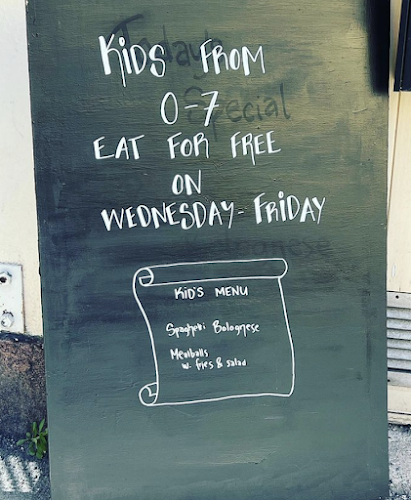 Kids FROM
Today's
0-7
Special
EAT FOR FREE
ON
WEDNESDAY-FRiDAY
KiD'S MENU
Spaghetti Bolognese
Meatballs
w. fries & salad